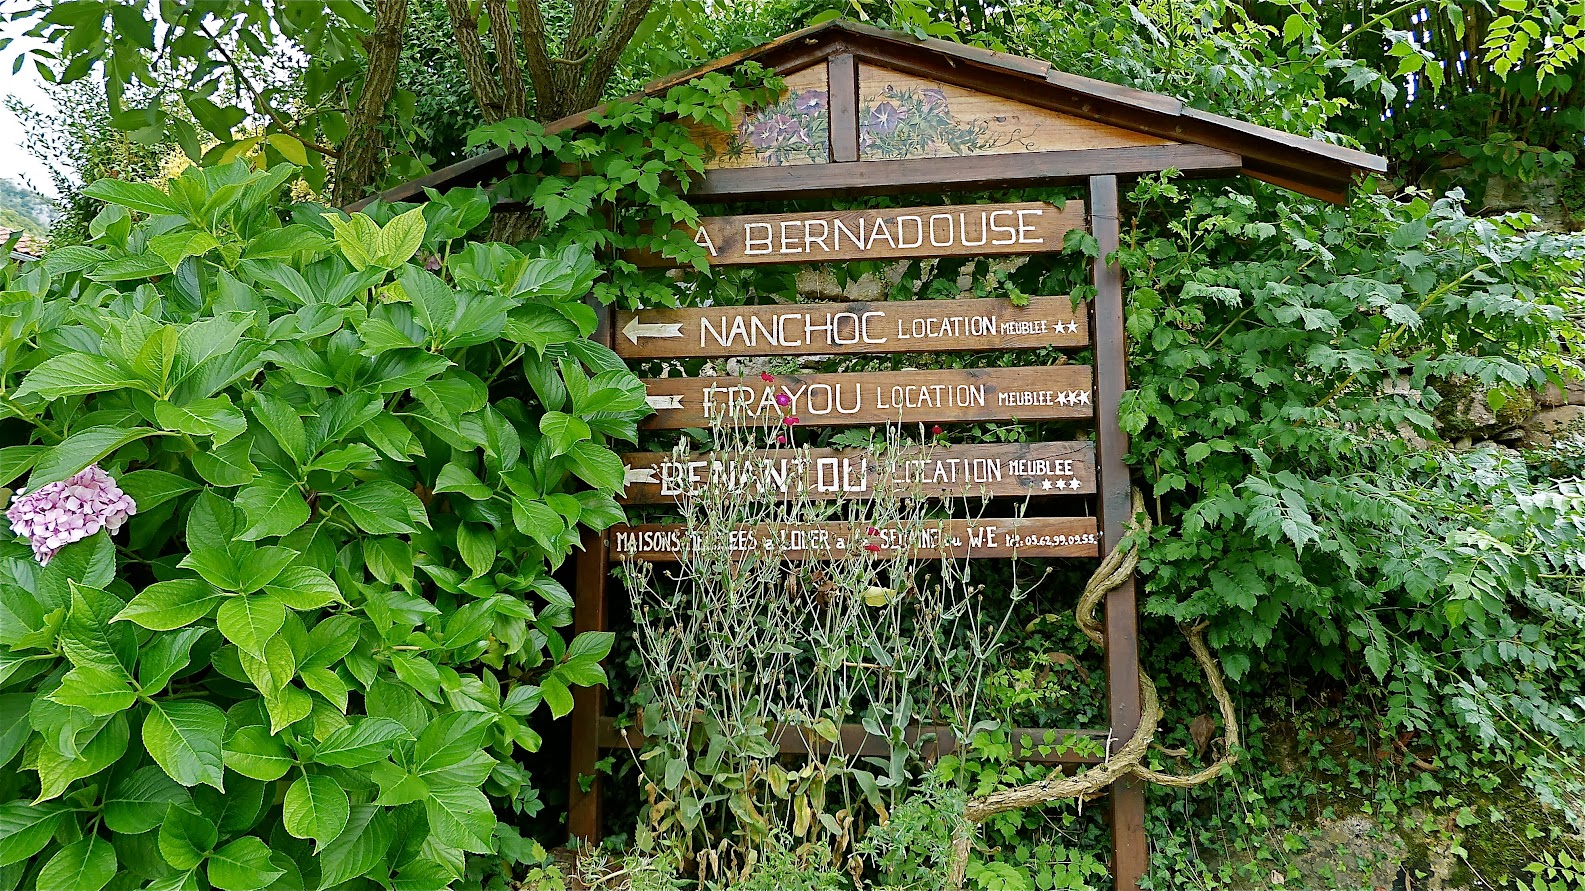 A BERNADOUSE
NANCHOC LOCATION MEUBLEE ★★
FRAYOU LOCATION MEUBLEE ★★★
BENANTOU LOCATION MEUBLEE ★★★
MAISONS LOUER a W-E tél. 05.62.99.09.55.